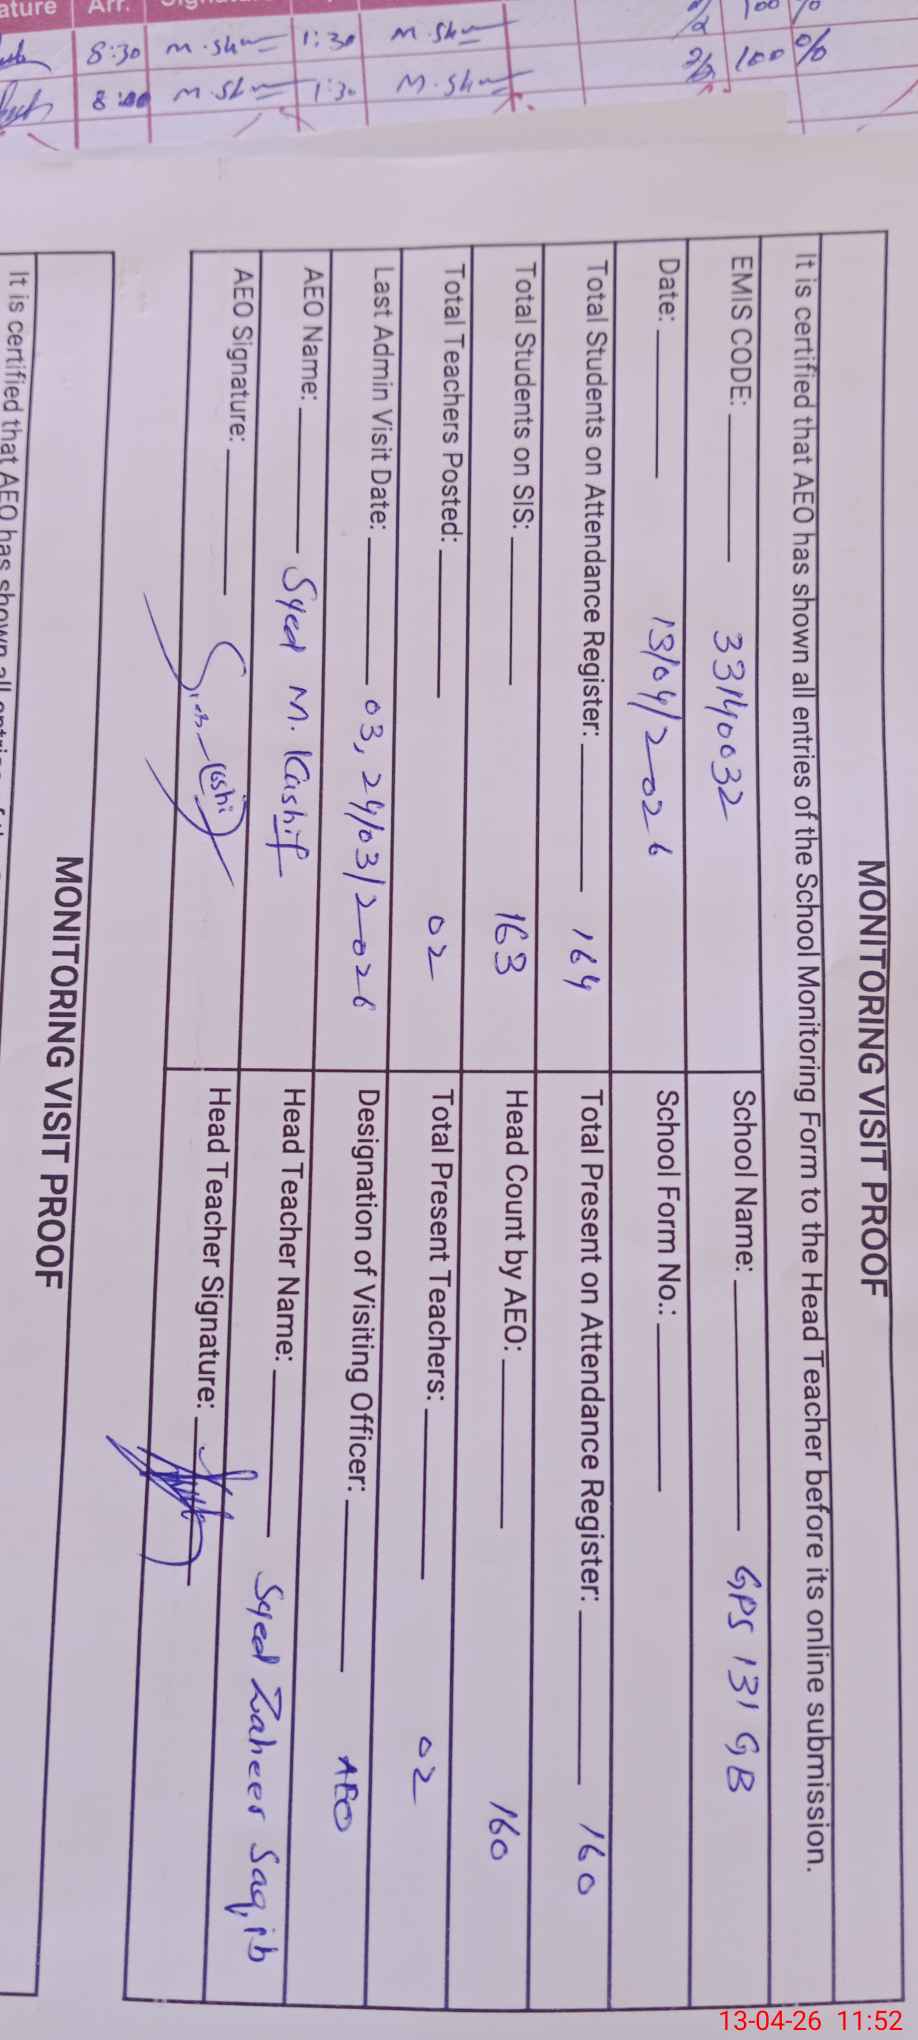 ature Arr.
8:30 M.Sh 1:30 M.Sh 100 %
8:00 M.Sh 1:30 M.Sh 100 %
MONITORING VISIT PROOF
It is certified that AEO has shown all entries of the School Monitoring Form to the Head Teacher before its online submission.
EMIS CODE: 33140032 School Name: GPS 131 GB
Date: 13/04/2026 School Form No.:
Total Students on Attendance Register: 164 Total Present on Attendance Register: 160
Total Students on SIS: 163 Head Count by AEO: 160
Total Teachers Posted: 02 Total Present Teachers: 02
Last Admin Visit Date: 03, 24/03/2026 Designation of Visiting Officer: AEO
AEO Name: Syed M. Kashif Head Teacher Name: Syed Zaheer Saqib
AEO Signature: Head Teacher Signature:
MONITORING VISIT PROOF
It is certified that AEO has shown all entries of the
13-04-26 11:52